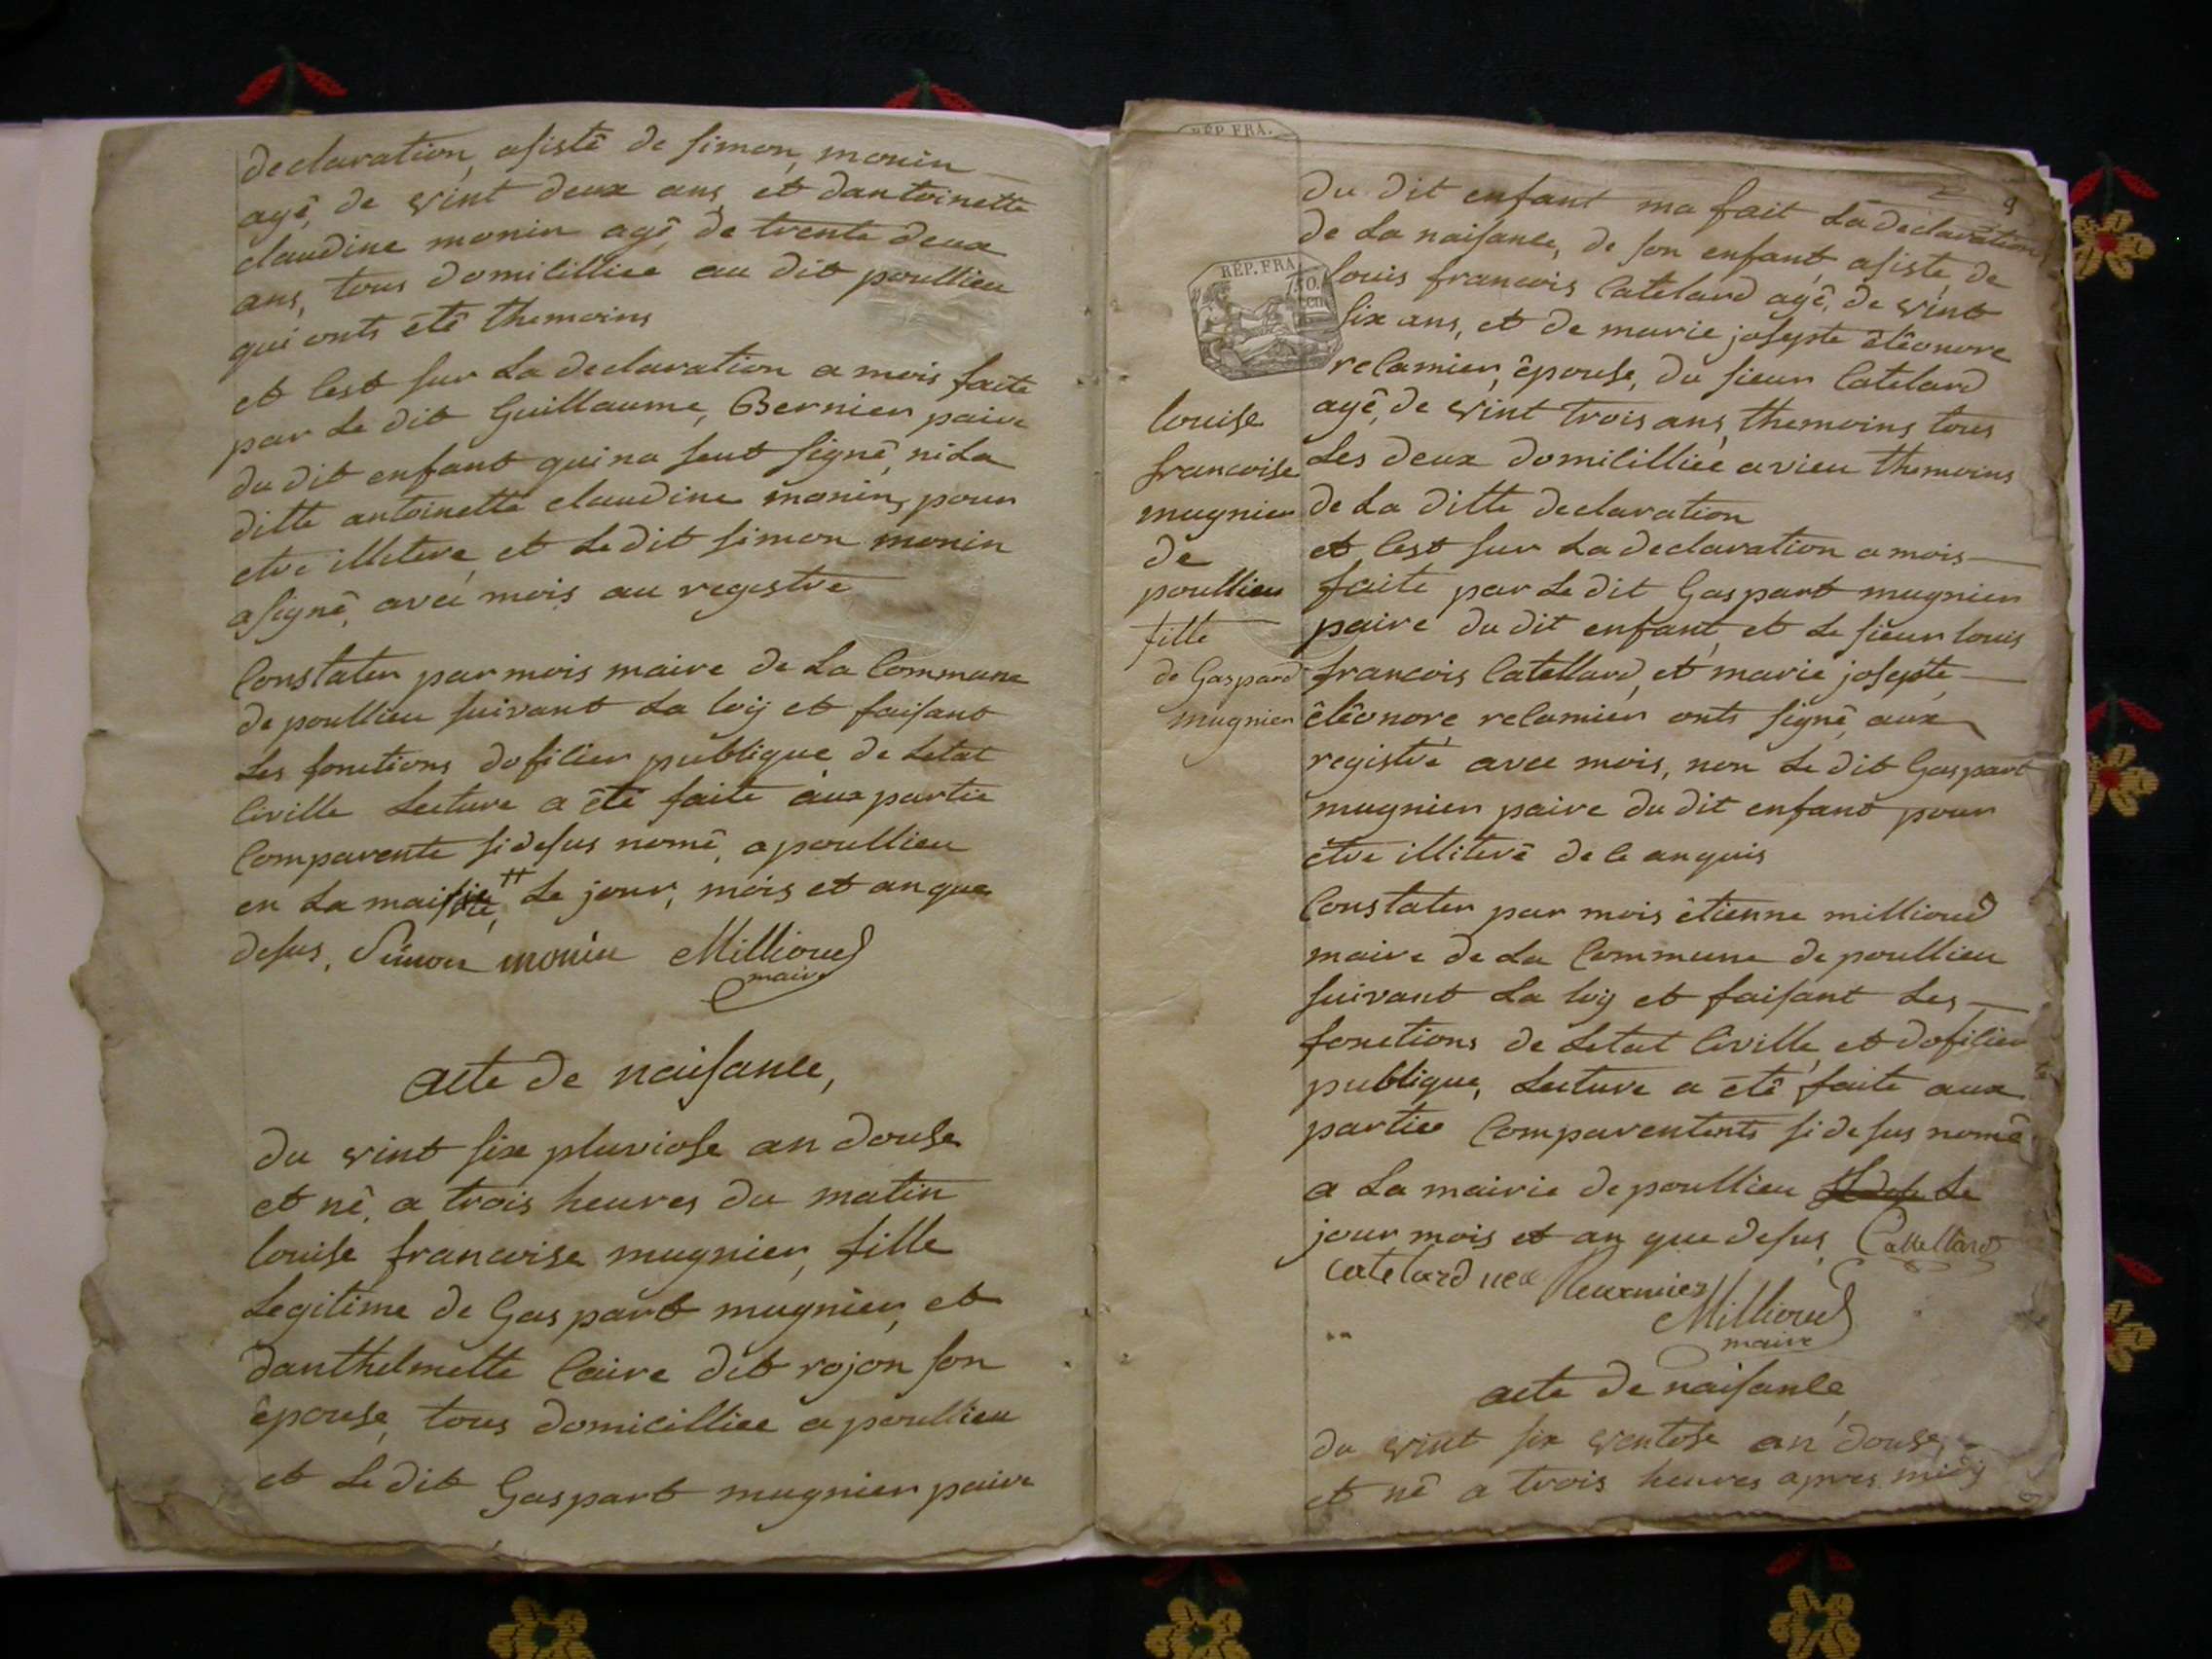 declaration, asisté de simon, monin
agé, de vint deux ans et dantoinette
claudine monin agé, de trente deux
ans, tous domicilliee au dit poullieu
qui onts été themoins
et cest sur La declaration a mois faite
par Le dit Guillaume, Bernier paire
du dit enfant qui na seut signé, ni La
ditte antoinette claudine monin, pour
etre illitere, et Le dit simon monin
a signé, avec mois au registre
Constater par mois maire de La Commune
de poullieu suivant La loÿ et faisant
Les fonctions dofisier publique de Letat
Civille Lecture a été faite aux partie
Comparente si desus nomé, a poullieu
en La Le jour, mois et an que
desus, Simon monin Millioud
maire
acte de naisance,
du vint six pluviose an douse
et né, a trois heures du matin
louise francoise mugnier, fille
Legitime de Gaspart mugnier, et
danthelmette Caire dit rojon son
épouse, tous domicilliee a poullieu
et Le dit Gaspart mugnier paire
9
RÉP. FRA.
RÉP. FRA.
du dit enfant ma fait La declaration
de La naisance, de son enfant, asisté, de
louis francois Catelard agé, de vint
six ans, et de marie josepte éléonore
recamier, épouse, du sieur Catelard
agé, de vint trois ans, themoins tous
Les deux domicilliee a vieu themoins
de La ditte declaration
louise
francoise
mugnier
de
poullieu
fille
de Gaspard
mugnier
et cest sur La declaration a mois
faite par Le dit Gaspart mugnier
paire du dit enfant, et Le sieur louis
francois Catellard, et marie josepte
éléonore recamier onts signé, aux
registre avec mois, non Le dit Gaspart
mugnier paire du dit enfant pour
étre illiteré de ce anquis
Constater par mois étienne millioud
maire de La Commune de poullieu
suivant La loÿ et faisant Les
fonctions de Letat Civille, et dofisier
publique, Lecture a été faite aux
partiee Comparentents si desus nomé
a La mairie de poullieu Le
jour mois et an que desus, Catellard
catelard nee Recamier
Millioud
maire
acte de naisance
du vint six ventose an douse,
et né a trois heures apres midÿ